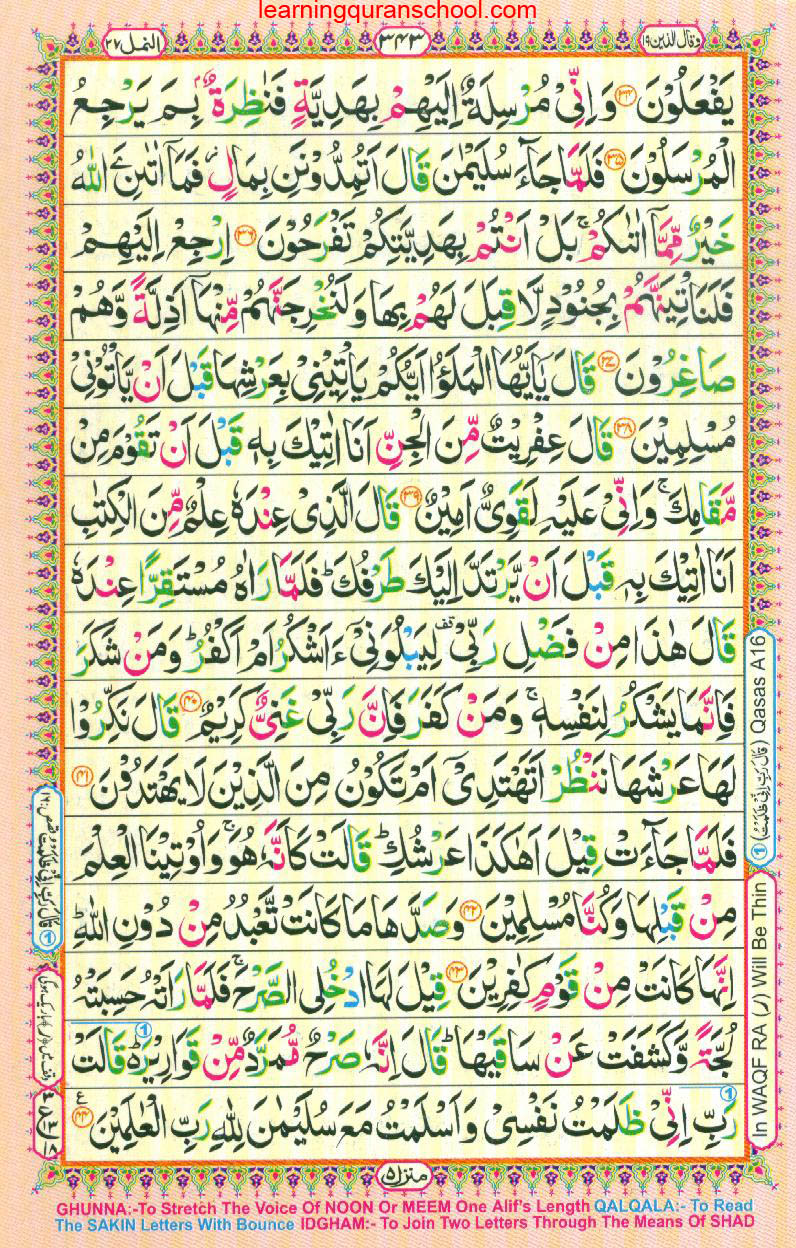 learningquranschool.com
النمل ٢٧
٣٤٣
وقال الذين ١٩
يَفْعَلُوْنَ ﴿۳۴﴾ وَاِنِّیْ مُرْسِلَةٌ اِلَیْهِمْ بِهَدِیَّةٍ فَنٰظِرَةٌۢ بِمَ یَرْجِعُ
الْمُرْسَلُوْنَ ﴿۳۵﴾ فَلَمَّا جَآءَ سُلَیْمٰنَ قَالَ اَتُمِدُّوْنَنِ بِمَالٍ ؗ فَمَاۤ اٰتٰىنِۦَ اللّٰهُ
خَیْرٌ مِّمَّاۤ اٰتٰىكُمْ ۚ بَلْ اَنْتُمْ بِهَدِیَّتِكُمْ تَفْرَحُوْنَ ﴿۳۶﴾ اِرْجِعْ اِلَیْهِمْ
فَلَنَاْتِیَنَّهُمْ بِجُنُوْدٍ لَّا قِبَلَ لَهُمْ بِهَا وَلَنُخْرِجَنَّهُمْ مِّنْهَاۤ اَذِلَّةً وَّهُمْ
صَاغِرُوْنَ ﴿۳۷﴾ قَالَ یٰۤاَیُّهَا الْمَلَؤُا اَیُّكُمْ یَاْتِیْنِیْ بِعَرْشِهَا قَبْلَ اَنْ یَّاْتُوْنِیْ
مُسْلِمِیْنَ ﴿۳۸﴾ قَالَ عِفْرِیْتٌ مِّنَ الْجِنِّ اَنَا اٰتِیْكَ بِهٖ قَبْلَ اَنْ تَقُوْمَ مِنْ
مَّقَامِكَ ۚ وَاِنِّیْ عَلَیْهِ لَقَوِیٌّ اَمِیْنٌ ﴿۳۹﴾ قَالَ الَّذِیْ عِنْدَهٗ عِلْمٌ مِّنَ الْكِتٰبِ
اَنَا اٰتِیْكَ بِهٖ قَبْلَ اَنْ یَّرْتَدَّ اِلَیْكَ طَرْفُكَ ؕ فَلَمَّا رَاٰهُ مُسْتَقِرًّا عِنْدَهٗ
قَالَ هٰذَا مِنْ فَضْلِ رَبِّیْ ۫ۖ لِیَبْلُوَنِیْۤ ءَاَشْكُرُ اَمْ اَكْفُرُ ؕ وَمَنْ شَكَرَ
فَاِنَّمَا یَشْكُرُ لِنَفْسِهٖ ۚ وَمَنْ كَفَرَ فَاِنَّ رَبِّیْ غَنِیٌّ كَرِیْمٌ ﴿۴۰﴾ قَالَ نَكِّرُوْا
لَهَا عَرْشَهَا نَنْظُرْ اَتَهْتَدِیْۤ اَمْ تَكُوْنُ مِنَ الَّذِیْنَ لَا یَهْتَدُوْنَ ﴿۴۱﴾
فَلَمَّا جَآءَتْ قِیْلَ اَهٰكَذَا عَرْشُكِ ؕ قَالَتْ كَاَنَّهٗ هُوَ ۚ وَاُوْتِیْنَا الْعِلْمَ
مِنْ قَبْلِهَا وَكُنَّا مُسْلِمِیْنَ ﴿۴۲﴾ وَصَدَّهَا مَا كَانَتْ تَّعْبُدُ مِنْ دُوْنِ اللّٰهِ ؕ
اِنَّهَا كَانَتْ مِنْ قَوْمٍ كٰفِرِیْنَ ﴿۴۳﴾ قِیْلَ لَهَا ادْخُلِی الصَّرْحَ ۚ فَلَمَّا رَاَتْهُ حَسِبَتْهُ
لُجَّةً وَّكَشَفَتْ عَنْ سَاقَیْهَا ؕ قَالَ اِنَّهٗ صَرْحٌ مُّمَرَّدٌ مِّنْ قَوَارِیْرَ ؕ۬ قَالَتْ
رَبِّ اِنِّیْ ظَلَمْتُ نَفْسِیْ وَاَسْلَمْتُ مَعَ سُلَیْمٰنَ لِلّٰهِ رَبِّ الْعٰلَمِیْنَ ﴿۴۴﴾
① (قَالَ رَبِّ اِنِّیْ ظَلَمْتُ) Qasas A16
In WAQF RA (ر) Will Be Thin
منزل ٥
GHUNNA:-To Stretch The Voice Of NOON Or MEEM One Alif's Length QALQALA:- To Read
The SAKIN Letters With Bounce IDGHAM:- To Join Two Letters Through The Means Of SHAD